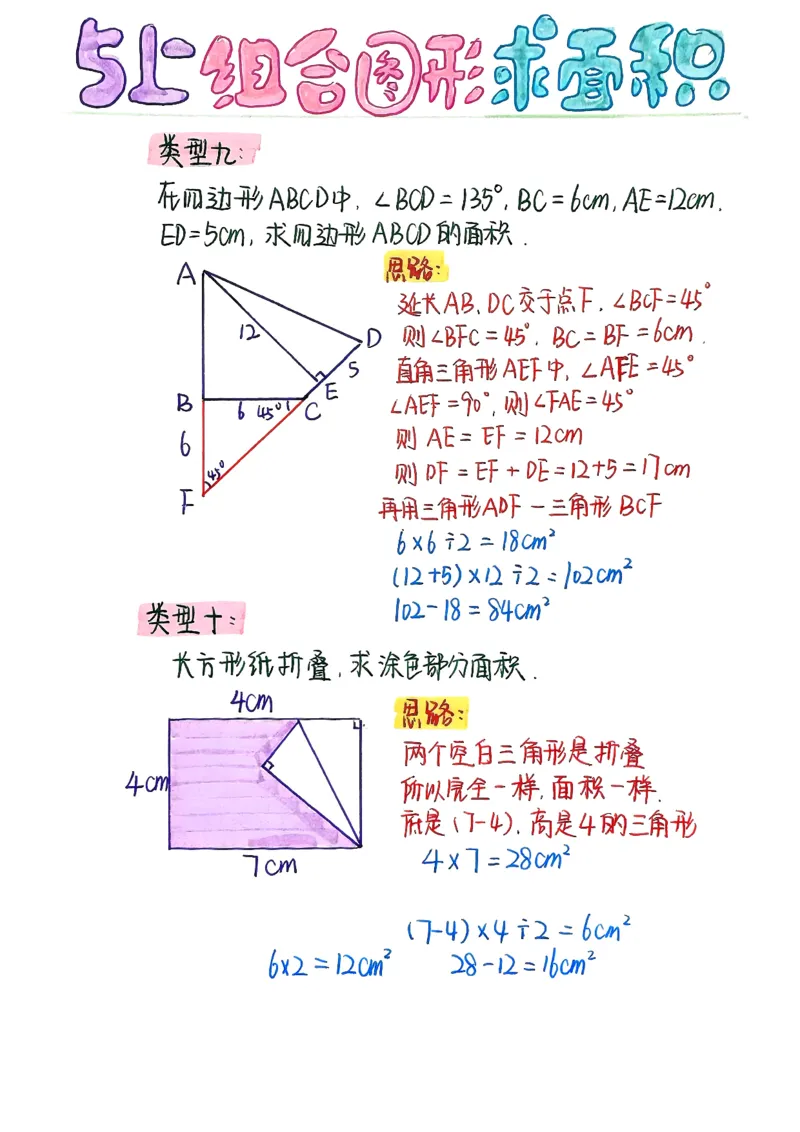 5上组合图形求面积
类型九:
在四边形ABCD中, ∠BCD=135°, BC=6cm, AE=12cm.
ED=5cm, 求四边形ABCD的面积.
思路:
延长AB、DC交于点F, ∠BCF=45°
则∠BFC=45°, BC=BF=6cm.
直角三角形AEF中, ∠AFE=45°
∠AEF=90°, 则∠FAE=45°
则 AE=EF=12cm
则 DF=EF+DE=12+5=17cm
再用三角形ADF-三角形BCF
6×6÷2=18cm²
(12+5)×12÷2=102cm²
102-18=84cm²
A
12
D
5
E
B
6 45°
C
6
45°
F
类型十:
长方形纸折叠, 求涂色部分面积.
4cm
4cm
7cm
思路:
两个空白三角形是折叠
所以完全一样, 面积一样.
底是(7-4), 高是4的三角形
4×7=28cm²
(7-4)×4÷2=6cm²
6×2=12cm² 28-12=16cm²